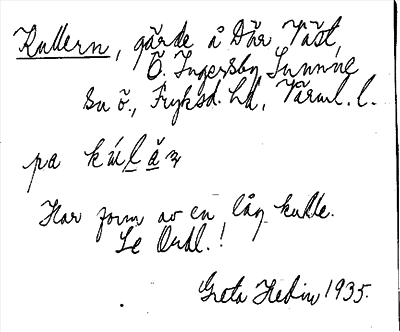 Kullern, gärde å Där Täst,
Ö. Ingersby Sunne
Su ö., Fryksd. hd, Värml. l.
pa kúlăṇ
Har form av en låg kulle.
Se Ordl.!
Greta Hedin 1935.